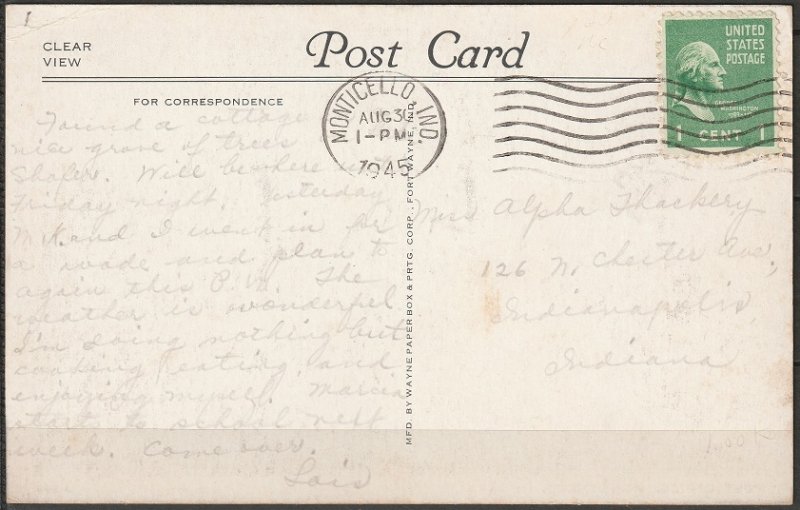 1
CLEAR
VIEW
Post Card
UNITED
STATES
POSTAGE
1 CENT 1
FOR CORRESPONDENCE
MONTICELLO, IND.
AUG 30
1-PM
1945
Found a cottage
nice grove of trees
Shafer. Will be here
Friday night. Yesterday
and I went in for
a wade and plan to
again this P.M. The
weather is wonderful
I'm doing nothing but
cooking, eating, and
enjoying myself. Marcia
start to school next
week. Come over.
Lois
MFD. BY WAYNE PAPER BOX & PRTG. CORP., FORT WAYNE, IND.
Miss Alpha Thackery
126 N. Chester Ave,
Indianapolis
Indiana